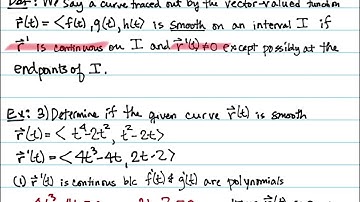 Def: We say a curve traced out by the vector-valued function
r⃗(t) = <f(t), g(t), h(t)> is smooth on an interval I if
r⃗' is continuous on I and r⃗'(t) ≠ 0 except possibly at the
endpoints of I.
Ex: 3) Determine if the given curve r⃗(t) is smooth
r⃗(t) = < t⁴-2t², t²-2t >
r⃗'(t) = < 4t³-4t, 2t-2 >
(1) r⃗'(t) is continous b/c f'(t) & g'(t) are polynomials